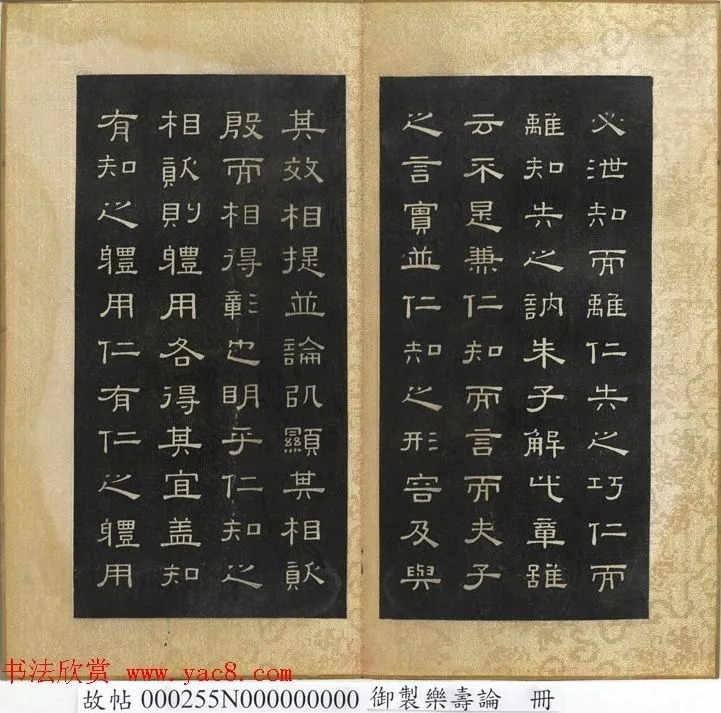 必泄知而離仁失之巧仁而
離知失之訥朱子解此章雖
云不是兼仁知而言而夫子
之言實並仁知之形容及與
其效相提並論以顯其相
殷而相得彰也明乎仁知之
相則體用各得其宜盖知
有知之體用仁有仁之體用
书法欣赏 www.yac8.com
故帖 000255N000000000 御製樂壽論 冊